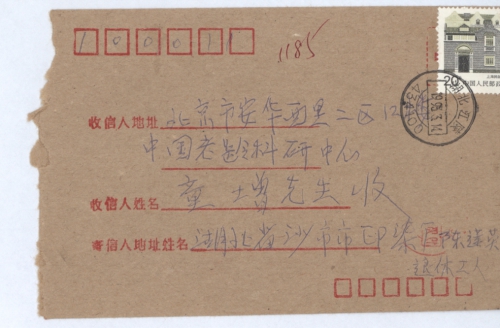 100011
1185
中国人民邮政
收信人地址 北京市安华西里二区12
中国老龄科研中心
收信人姓名 童增先生收
寄信人地址姓名 湖北省沙市市印染
退休工人